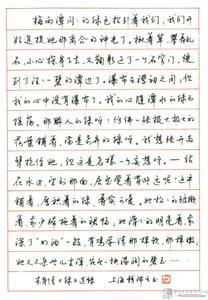 梅雨潭闪闪的绿色招引着我们，我们开
始追捉她那离合的神光了。揪着草，攀着乱
石，小心探身下去，又鞠躬过了一个石穹门，便
到了汪汪一碧的潭边了。瀑布在襟袖之间，但
我的心中没有瀑布了。我的心随潭水的绿而
摇荡。那醉人的绿呀！仿佛一张极大极大的
荷叶铺着，满是奇异的绿呀。我想张开两
臂抱住她，但这是怎样一个妄想呀。——站
在水边，望到那面，居然觉着有些远呢！这平
铺着，厚积着的绿，着实可爱。她松松的皱缬
着，像少妇拖着的裙幅，
她滑滑的明亮着，像
涂了"明油"一般，有鸡蛋清那样软，那样嫩，
她又不杂些儿尘滓，宛然一块温润的碧玉……
朱自清《绿》选练 上海